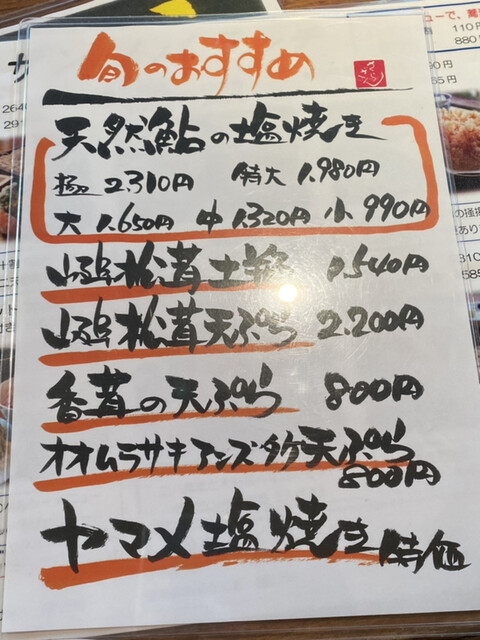 旬のおすすめ
天然鮎の塩焼き
極 2.310円 特大 1.980円
大 1.650円 中 1.320円 小 990円
松茸土瓶 1.540円
松茸天ぷら 2.200円
香茸の天ぷら 800円
オオムラサキアンズタケ天ぷら
800円
ヤマメ塩焼き 時価
110円
880